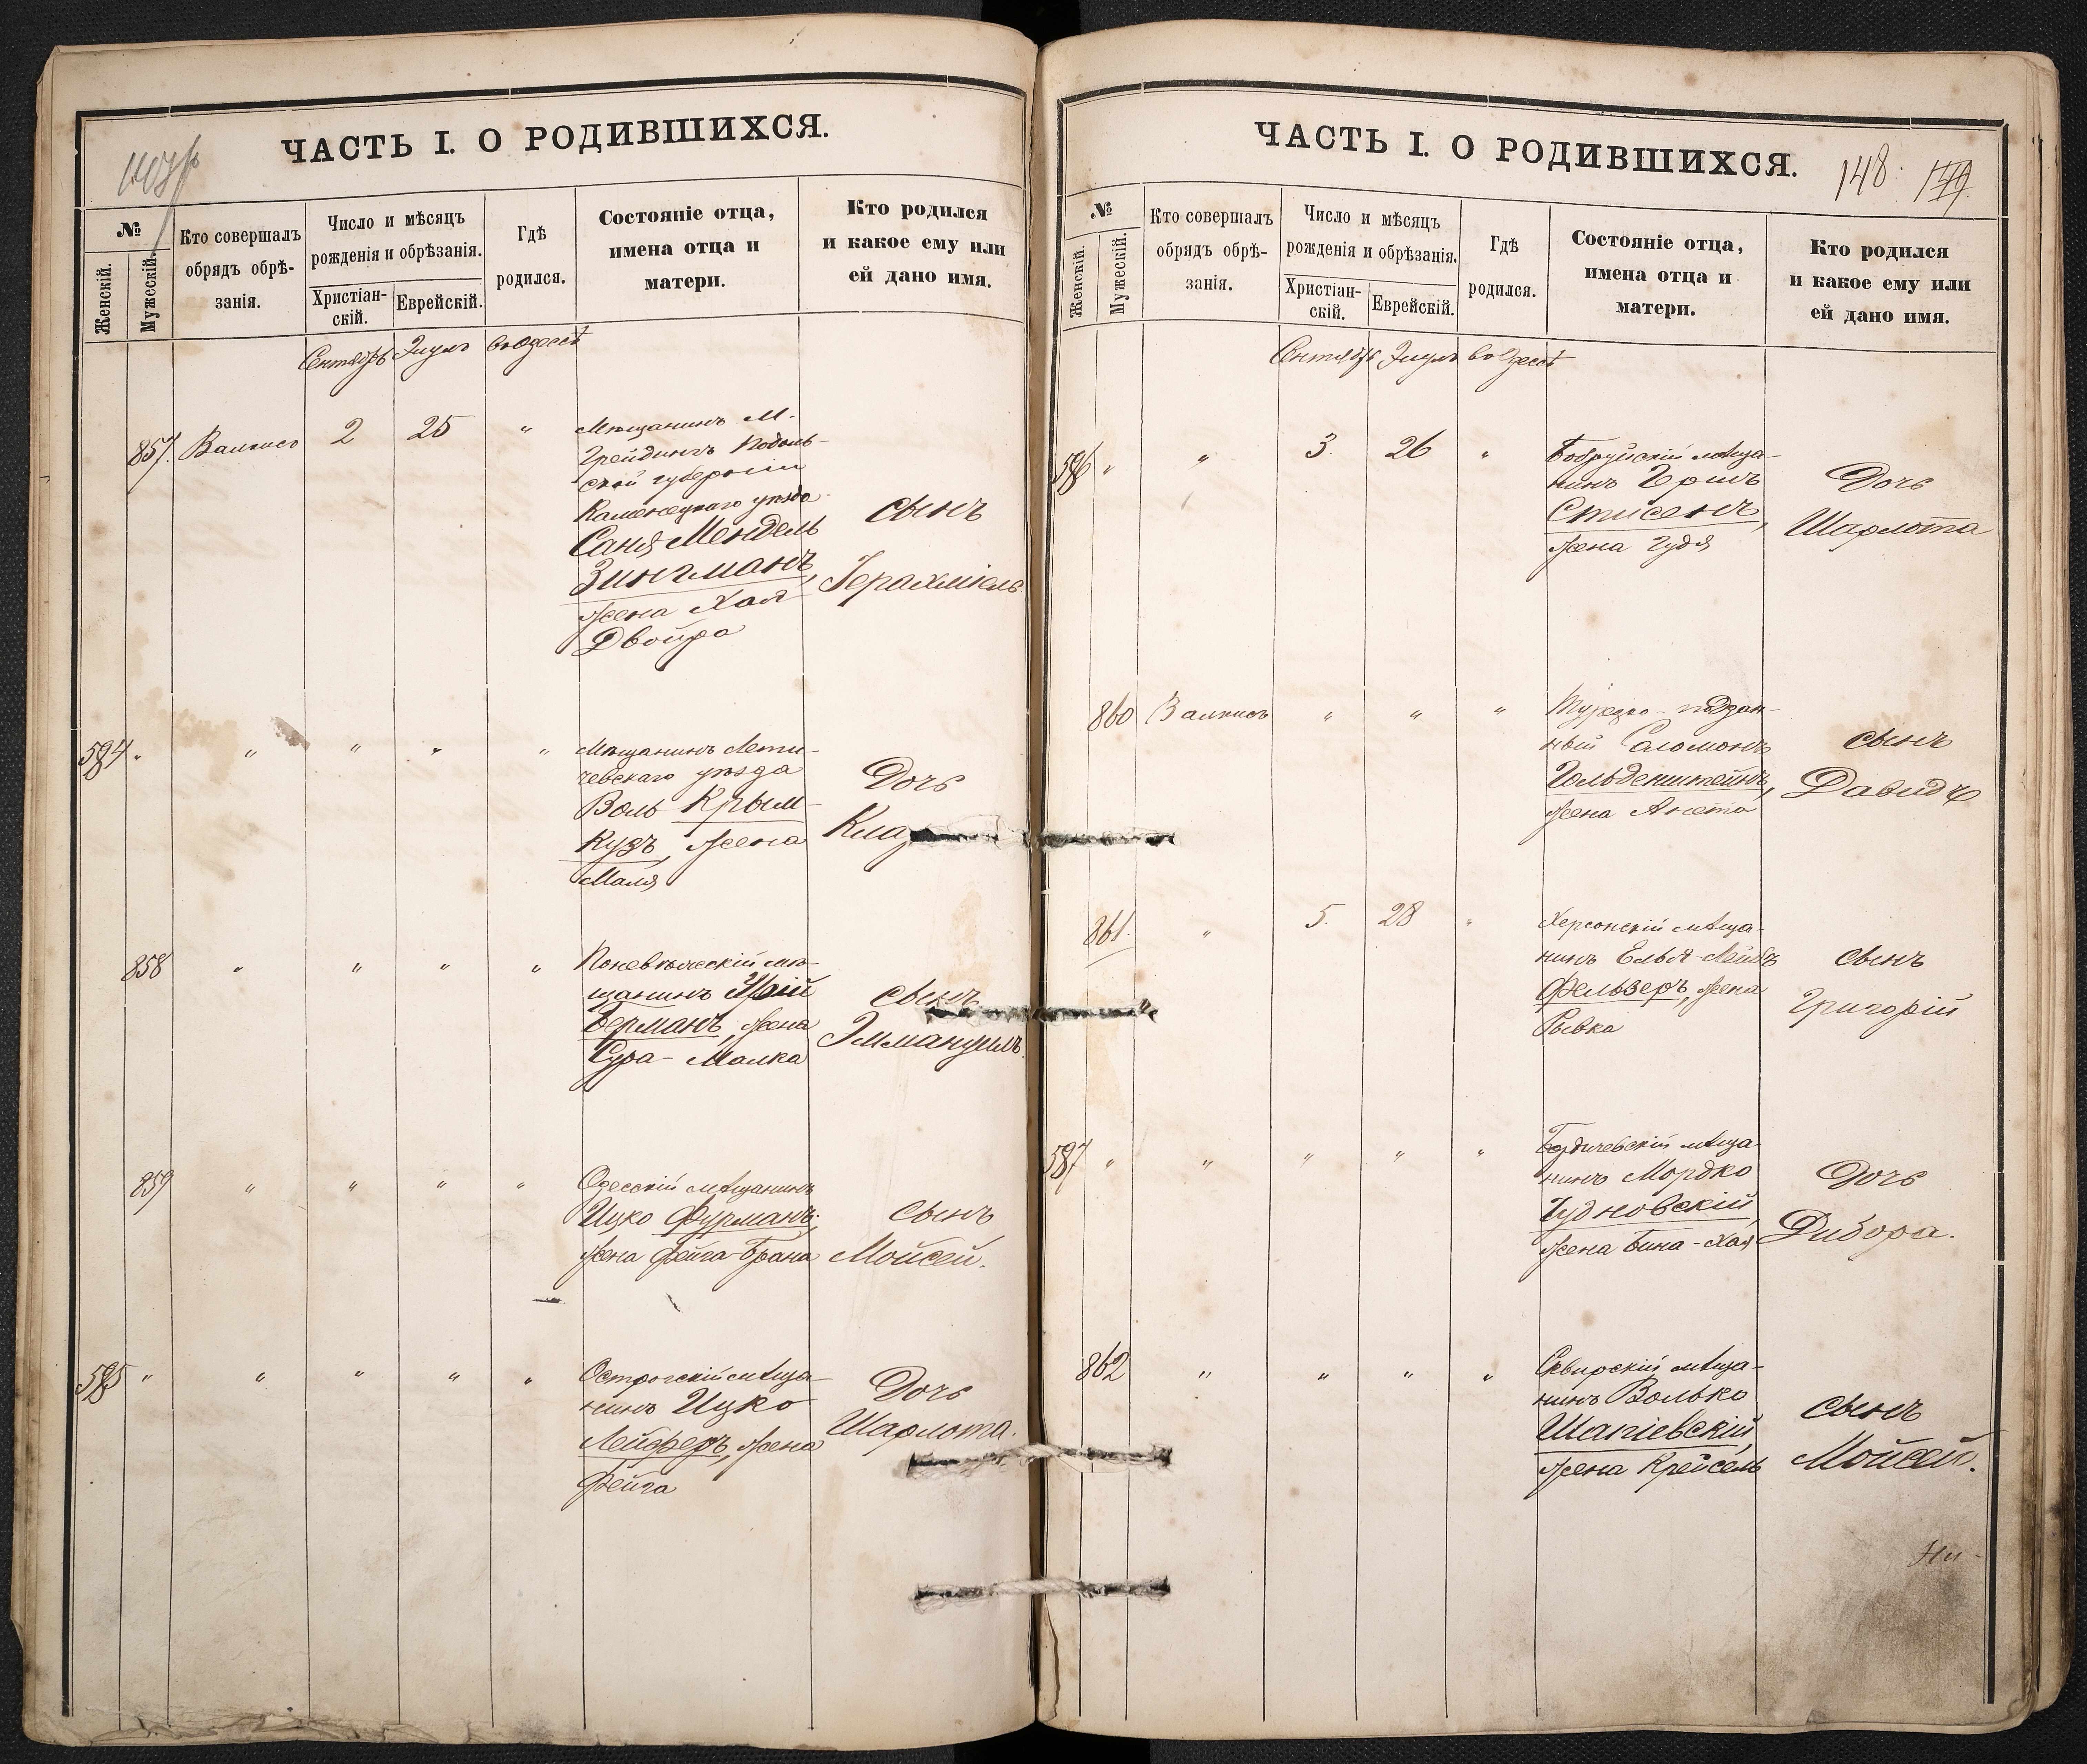 ЧАСТЬ I. О РОДИВШИХСЯ.
№
Женскій.
Мужескій.
Кто совершалъ
обрядъ обрѣ-
занія.
Число и мѣсяцъ
рожденія и обрѣзанія.
Христіан-
скій.
Еврейскій.
Гдѣ
родился.
Состояніе отца,
имена отца и
матери.
Кто родился
и какое ему или
ей дано имя.
Сентябрь Элулъ въ Одессѣ
857. 2 25 "
Мѣщанинъ М.
Грейдингъ Подоль-
ской губерніи
Каменецкаго уѣзда
Саня Мендель
Зингманъ,
жена Хая
Двойра
сынъ
Іерахміель
584 " " " " "
Мѣщанинъ Лети-
чевскаго уѣзда
Воль Крым-
кузъ, жена
Маля
Дочь
858 " " " "
Поневѣжскій мѣ-
щанинъ
Берманъ, жена
Сура-Малка
сынъ
Эммануилъ
859 " " " "
Одесскій мѣщанинъ
Ицко Фурманъ,
жена Фейга-Брана
сынъ
Мойсей.
585 " " " " "
Острогскій мѣща-
нинъ Ицко
Лейдферъ, жена
Фейга
Дочь
Шарлота.
ЧАСТЬ I. О РОДИВШИХСЯ.
148.
№
Женскій.
Мужескій.
Кто совершалъ
обрядъ обрѣ-
занія.
Число и мѣсяцъ
рожденія и обрѣзанія.
Христіан-
скій.
Еврейскій.
Гдѣ
родился.
Состояніе отца,
имена отца и
матери.
Кто родился
и какое ему или
ей дано имя.
Сентябрь Элулъ въ Одессѣ
586 " " 3. 26 "
Бобруйскій мѣща-
нинъ Гершъ
жена Гудя
Дочь
Шарлота
860 " " "
Турецко-поддан-
ный Соломонъ
Гольденштейнъ,
жена Анета
сынъ
Давидъ
861. " 5. 28 "
Херсонскій мѣща-
нинъ Елья-Лейбъ
Фельзеръ, жена
Рывка
сынъ
Григорій
587 " " " " "
Бердичевскій мѣща-
нинъ Мордко
Чудновскій,
жена Бина-Хая
Дочь
Дибора.
862 " " " "
Сквирскій мѣща-
нинъ Волько
Шапіевскій,
жена Крейсель
сынъ
Мойсей.